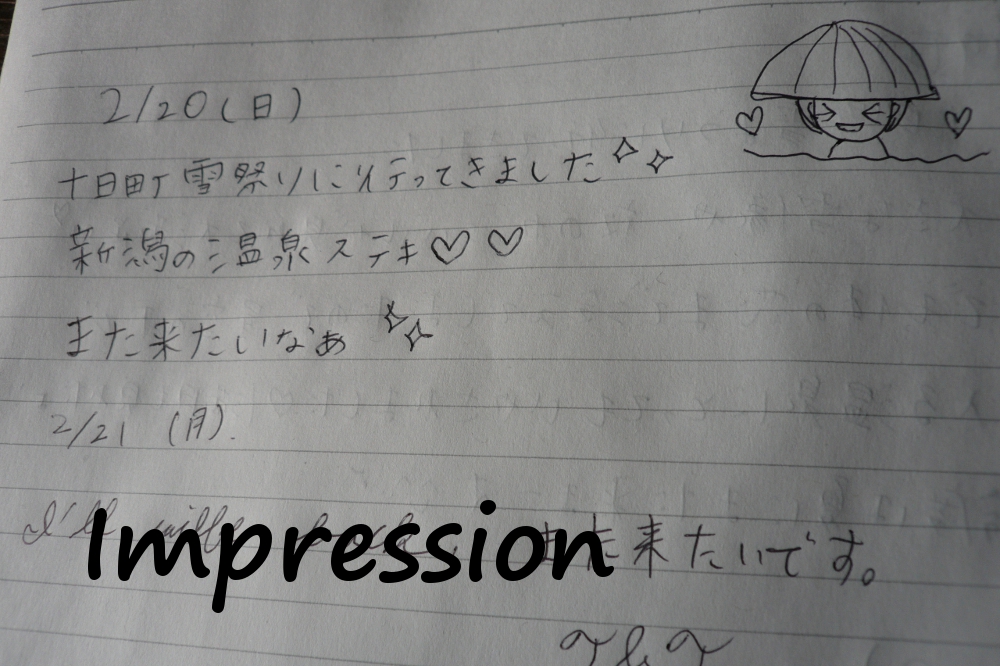 2/20(日)
十日町雪祭りに行ってきました
新潟の温泉ステキ♡♡
また来たいなぁ
2/21 (月).
I'll また来たいです。
Impression